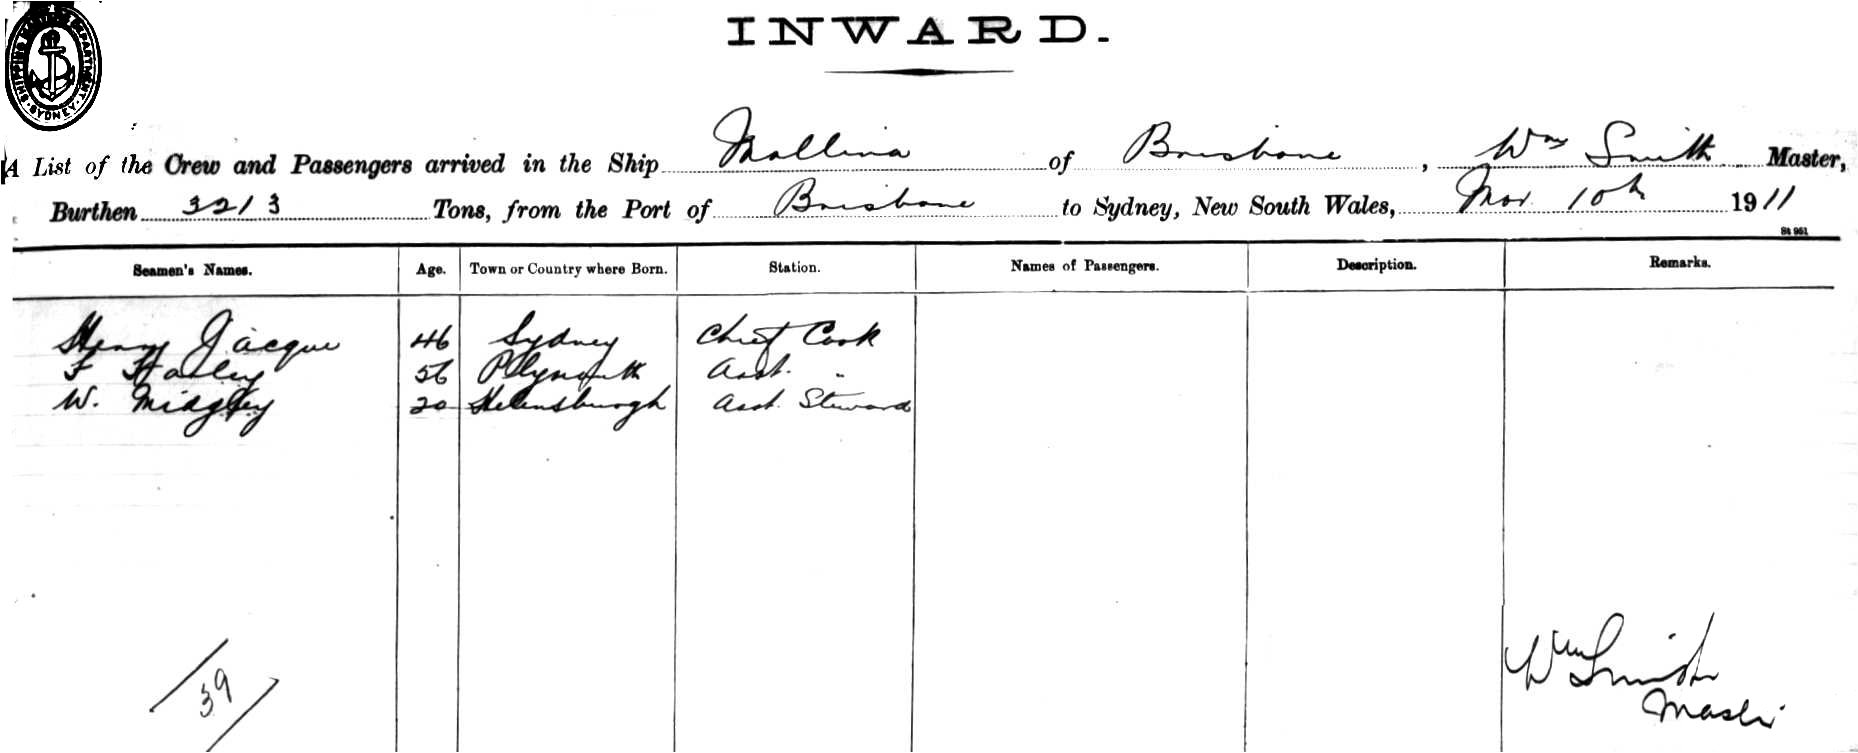 SHIPPING MASTER'S DEPARTMENT SYDNEY
INWARD.
A List of the Crew and Passengers arrived in the Ship Mallina of Brisbane, Wm Smith Master,
Burthen 3213 Tons, from the Port of Brisbane to Sydney, New South Wales, Nov 10th 1911
St 951
Seamen's Names. Age. Town or Country where Born. Station. Names of Passengers. Description. Remarks.
Henry Jacque 46 Sydney Chief Cook
F 56 Plymouth Asst. "
W. Midgley 20 Helensburgh Asst. Steward
39
Wm Smith
Master